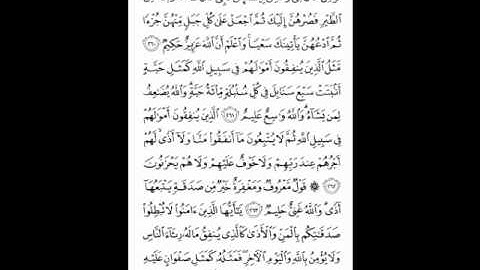 ٱلطَّيۡرِ فَصُرۡهُنَّ إِلَيۡكَ ثُمَّ ٱجۡعَلۡ عَلَىٰ كُلِّ جَبَلٖ مِّنۡهُنَّ جُزۡءٗا
ثُمَّ ٱدۡعُهُنَّ يَأۡتِينَكَ سَعۡيٗاۚ وَٱعۡلَمۡ أَنَّ ٱللَّهَ عَزِيزٌ حَكِيمٞ ٢٦٠
مَّثَلُ ٱلَّذِينَ يُنفِقُونَ أَمۡوَٰلَهُمۡ فِي سَبِيلِ ٱللَّهِ كَمَثَلِ حَبَّةٍ
أَنۢبَتَتۡ سَبۡعَ سَنَابِلَ فِي كُلِّ سُنۢبُلَةٖ مِّاْئَةُ حَبَّةٖۗ وَٱللَّهُ يُضَٰعِفُ
لِمَن يَشَآءُۚ وَٱللَّهُ وَٰسِعٌ عَلِيمٌ ٢٦١ ٱلَّذِينَ يُنفِقُونَ أَمۡوَٰلَهُمۡ
فِي سَبِيلِ ٱللَّهِ ثُمَّ لَا يُتۡبِعُونَ مَآ أَنفَقُواْ مَنّٗا وَلَآ أَذٗى لَّهُمۡ
أَجۡرُهُمۡ عِندَ رَبِّهِمۡ وَلَا خَوۡفٌ عَلَيۡهِمۡ وَلَا هُمۡ يَحۡزَنُونَ
٢٦٢ ۞ قَوۡلٞ مَّعۡرُوفٞ وَمَغۡفِرَةٌ خَيۡرٞ مِّن صَدَقَةٖ يَتۡبَعُهَآ
أَذٗىۗ وَٱللَّهُ غَنِيٌّ حَلِيمٞ ٢٦٣ يَٰٓأَيُّهَا ٱلَّذِينَ ءَامَنُواْ لَا تُبۡطِلُواْ
صَدَقَٰتِكُم بِٱلۡمَنِّ وَٱلۡأَذَىٰ كَٱلَّذِي يُنفِقُ مَالَهُۥ رِئَآءَ ٱلنَّاسِ
وَلَا يُؤۡمِنُ بِٱللَّهِ وَٱلۡيَوۡمِ ٱلۡأٓخِرِۖ فَمَثَلُهُۥ كَمَثَلِ صَفۡوَانٍ عَلَيۡهِ